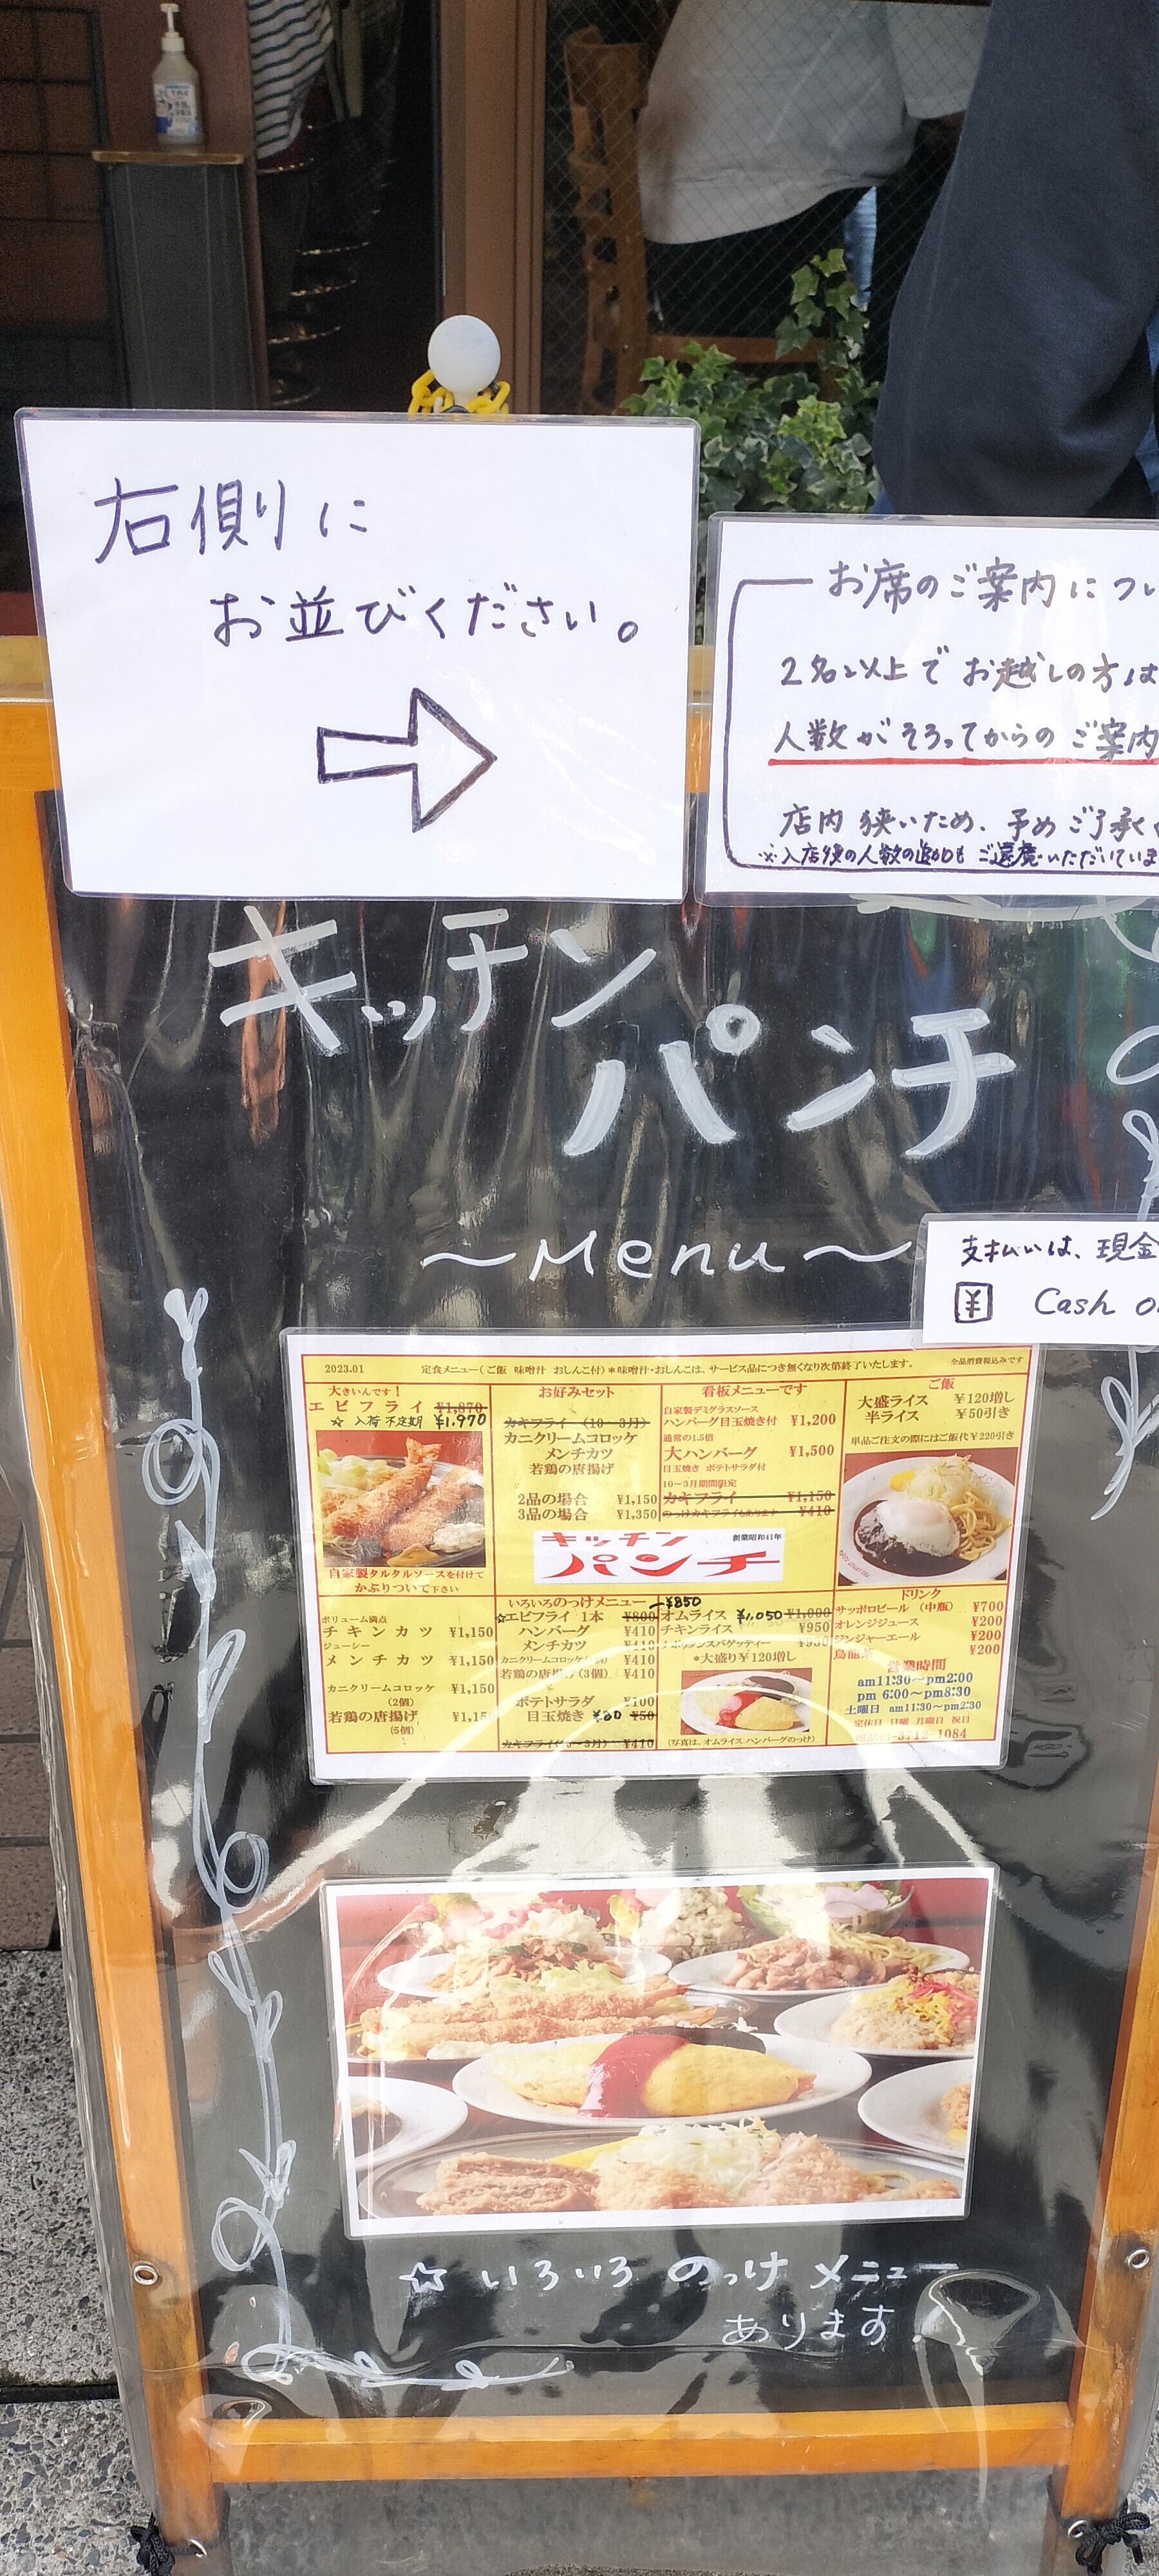 右側に
お並びください。
お席のご案内につい
2名以上でお越しの方は
人数がそろってからのご案内
店内狭いため、予めご了承く
※入店後の人数の追加もご遠慮いただいていま
キッチン
パンチ
～Menu～
支払いは、現金
¥ Cash
2023.01 定食メニュー(ご飯 味噌汁 おしんこ付)*味噌汁・おしんこは、サービス品につき無くなり次第終了いたします。 全品消費税込みです
大きいんです!
エビフライ ¥1,870
☆ 入荷不定期 ¥1,970
自家製タルタルソースを付けて
かぶりついて下さい
お好みセット
カキフライ (10～3月)
カニクリームコロッケ
メンチカツ
若鶏の唐揚げ
2品の場合 ¥1,150
3品の場合 ¥1,350
看板メニューです
自家製デミグラスソース
ハンバーグ目玉焼き付 ¥1,200
通常の1.5倍
大ハンバーグ ¥1,500
目玉焼き ポテトサラダ付
10～3月期間限定
カキフライ ¥1,150
のっけカキフライもあります ¥410
ご飯
大盛ライス ¥120増し
半ライス ¥50引き
単品ご注文の際にはご飯代¥220引き
キッチン
創業昭和41年
パンチ
ボリューム満点
チキンカツ ¥1,150
ジューシー
メンチカツ ¥1,150
カニクリームコロッケ ¥1,150
(2個)
若鶏の唐揚げ ¥1,15
(5個)
いろいろのっけメニュー
¥850
☆エビフライ 1本 ¥800
ハンバーグ ¥410
メンチカツ ¥410
カニクリームコロッケ ¥410
若鶏の唐揚げ(3個) ¥410
ポテトサラダ ¥100
目玉焼き ¥80 ¥50
カキフライ(10～3月) ¥410
オムライス ¥1,050 ¥1,000
チキンライス ¥950
ナポリタンスパゲッティー ¥950
*大盛り¥120増し
(写真は、オムライス ハンバーグのっけ)
ドリンク
サッポロビール (中瓶) ¥700
オレンジジュース ¥200
ジンジャーエール ¥200
烏龍茶 ¥200
営業時間
am11:30～pm2:00
pm 6:00～pm8:30
土曜日 am11:30～pm2:30
定休日 日曜 月曜日 祝日
3712-1084
☆ いろいろ のっけ メニュー
あります!